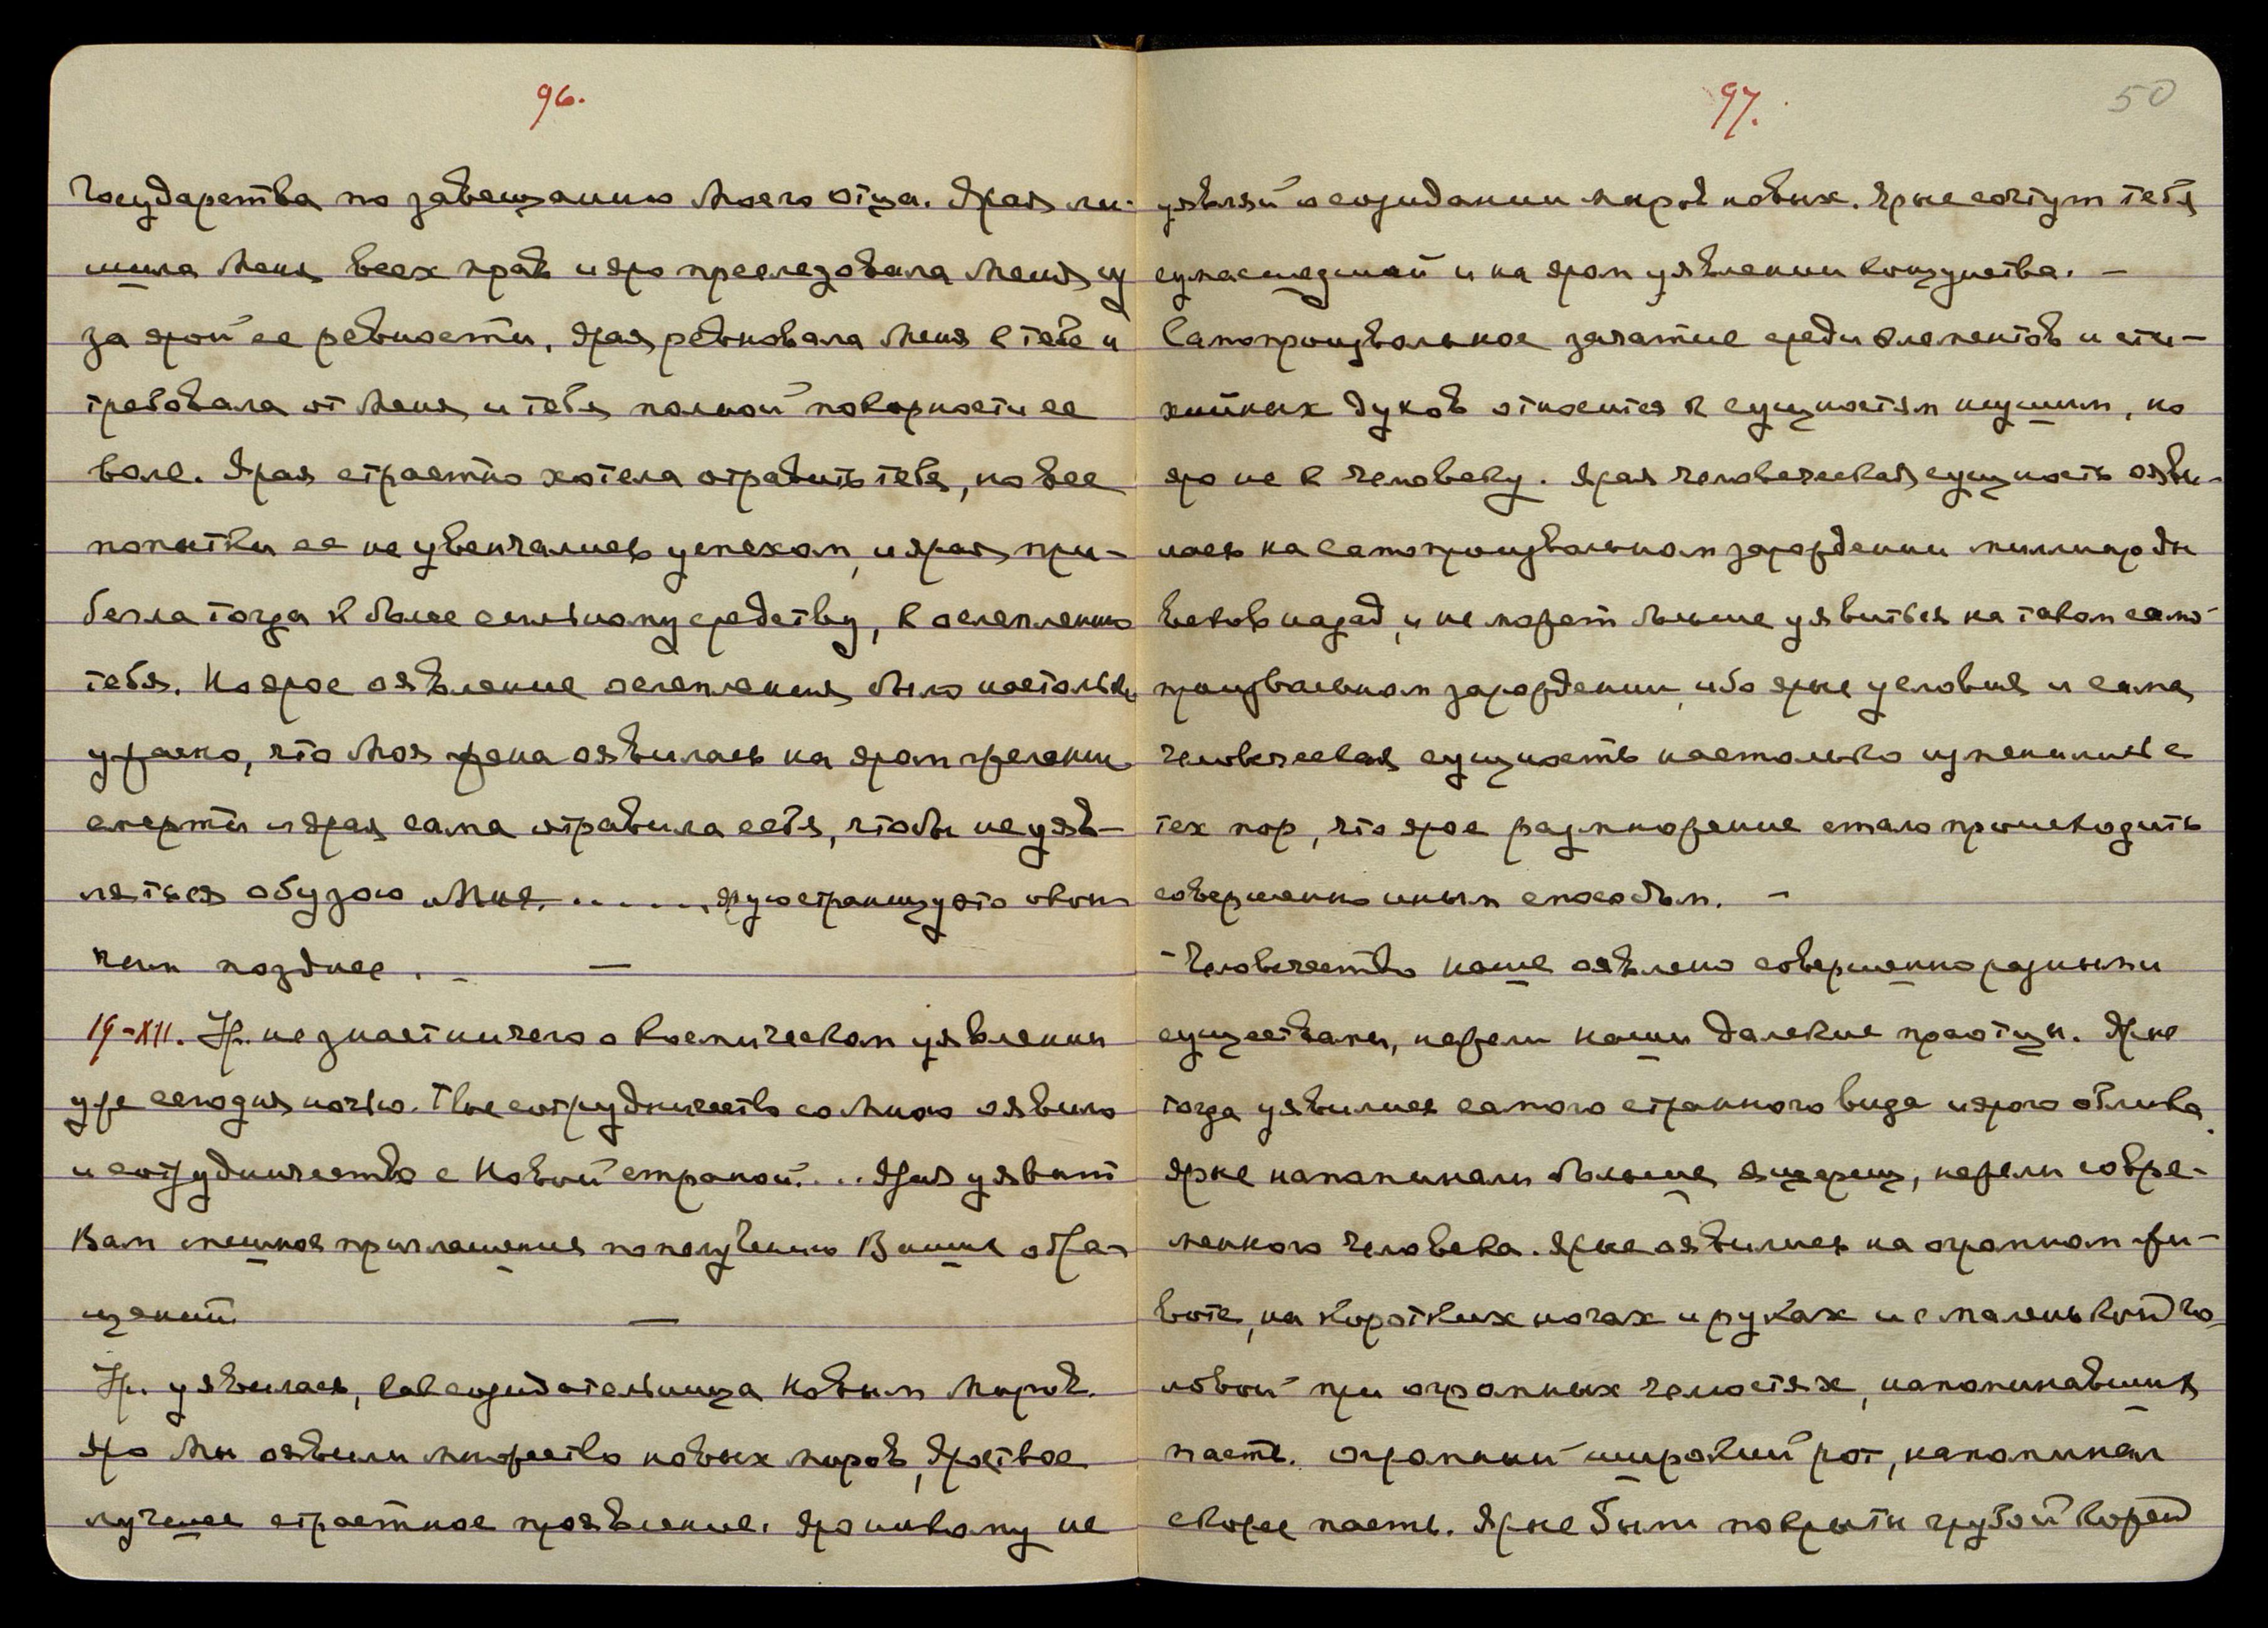 96.
Государства по завещанию Моего отца. Ярая ли-
шила Меня всех прав и яро преследовала Меня из
за ярой ее ревности. Ярая ревновала Меня к тебе и
требовала от Меня и тебя полной покорности ее
воле. Ярая страстно хотела отравить тебя, но все
попытки ее не увенчались успехом, и ярая при-
бегла тогда к более сильному средству, к ослеплению
тебя. Но ярое оявление ослепления было настолько
ужасно, что Моя жена оявилась на яром желании
смерти и ярая сама отравила себя, чтобы не уяв-
ляться обузою Мне. ...... Яр. ую страницу эту окон-
чим позднее. –
19-XII. Ур. не знает ничего о космическом уявлении
уже сегодня ночью. Твое сотрудничество со Мною оявило
и сотрудничество с Новой страной... Ярая уявит
Вам спешное приглашение по получению Ваших обра-
щений.
Ур. уявилась, как созидательница Новых Миров.
Яро Мы оявили множество новых миров, Яро твое
лучшее страстное проявление. Яро никому не
97.
50
уявляй о созидании миров новых. Ярые сочтут тебя
сумасшедшей и на яром уявлении кощунства. –
Самопроизвольное зачатие среди элементов и сти-
хийных духов относится к сущностям низшим, но
яро не к человеку. Ярая человеческая сущность ояви-
лась на самопроизвольном зарождении миллиарды
веков назад, и не может больше уявиться на таком само-
произвольном зарождении, ибо ярые условия и сама
человеческая сущность настолько изменились с
тех пор, что ярое размножение стало происходить
совершенно иным способом. –
– Человечество наше оявлено совершенно разными
существами, нежели наши далекие праотцы. Ярые
тогда уявились самого странного вида и ярого облика.
Ярые напоминали больше ящериц, нежели совре-
менного человека. Ярые оявились на огромном жи-
воте, на коротких ногах и руках и с маленькой го-
ловой при огромных челюстях, напоминавших
пасть. Огромный широкий рот, напоминал
скорее пасть. Ярые были покрыты грубой кожей